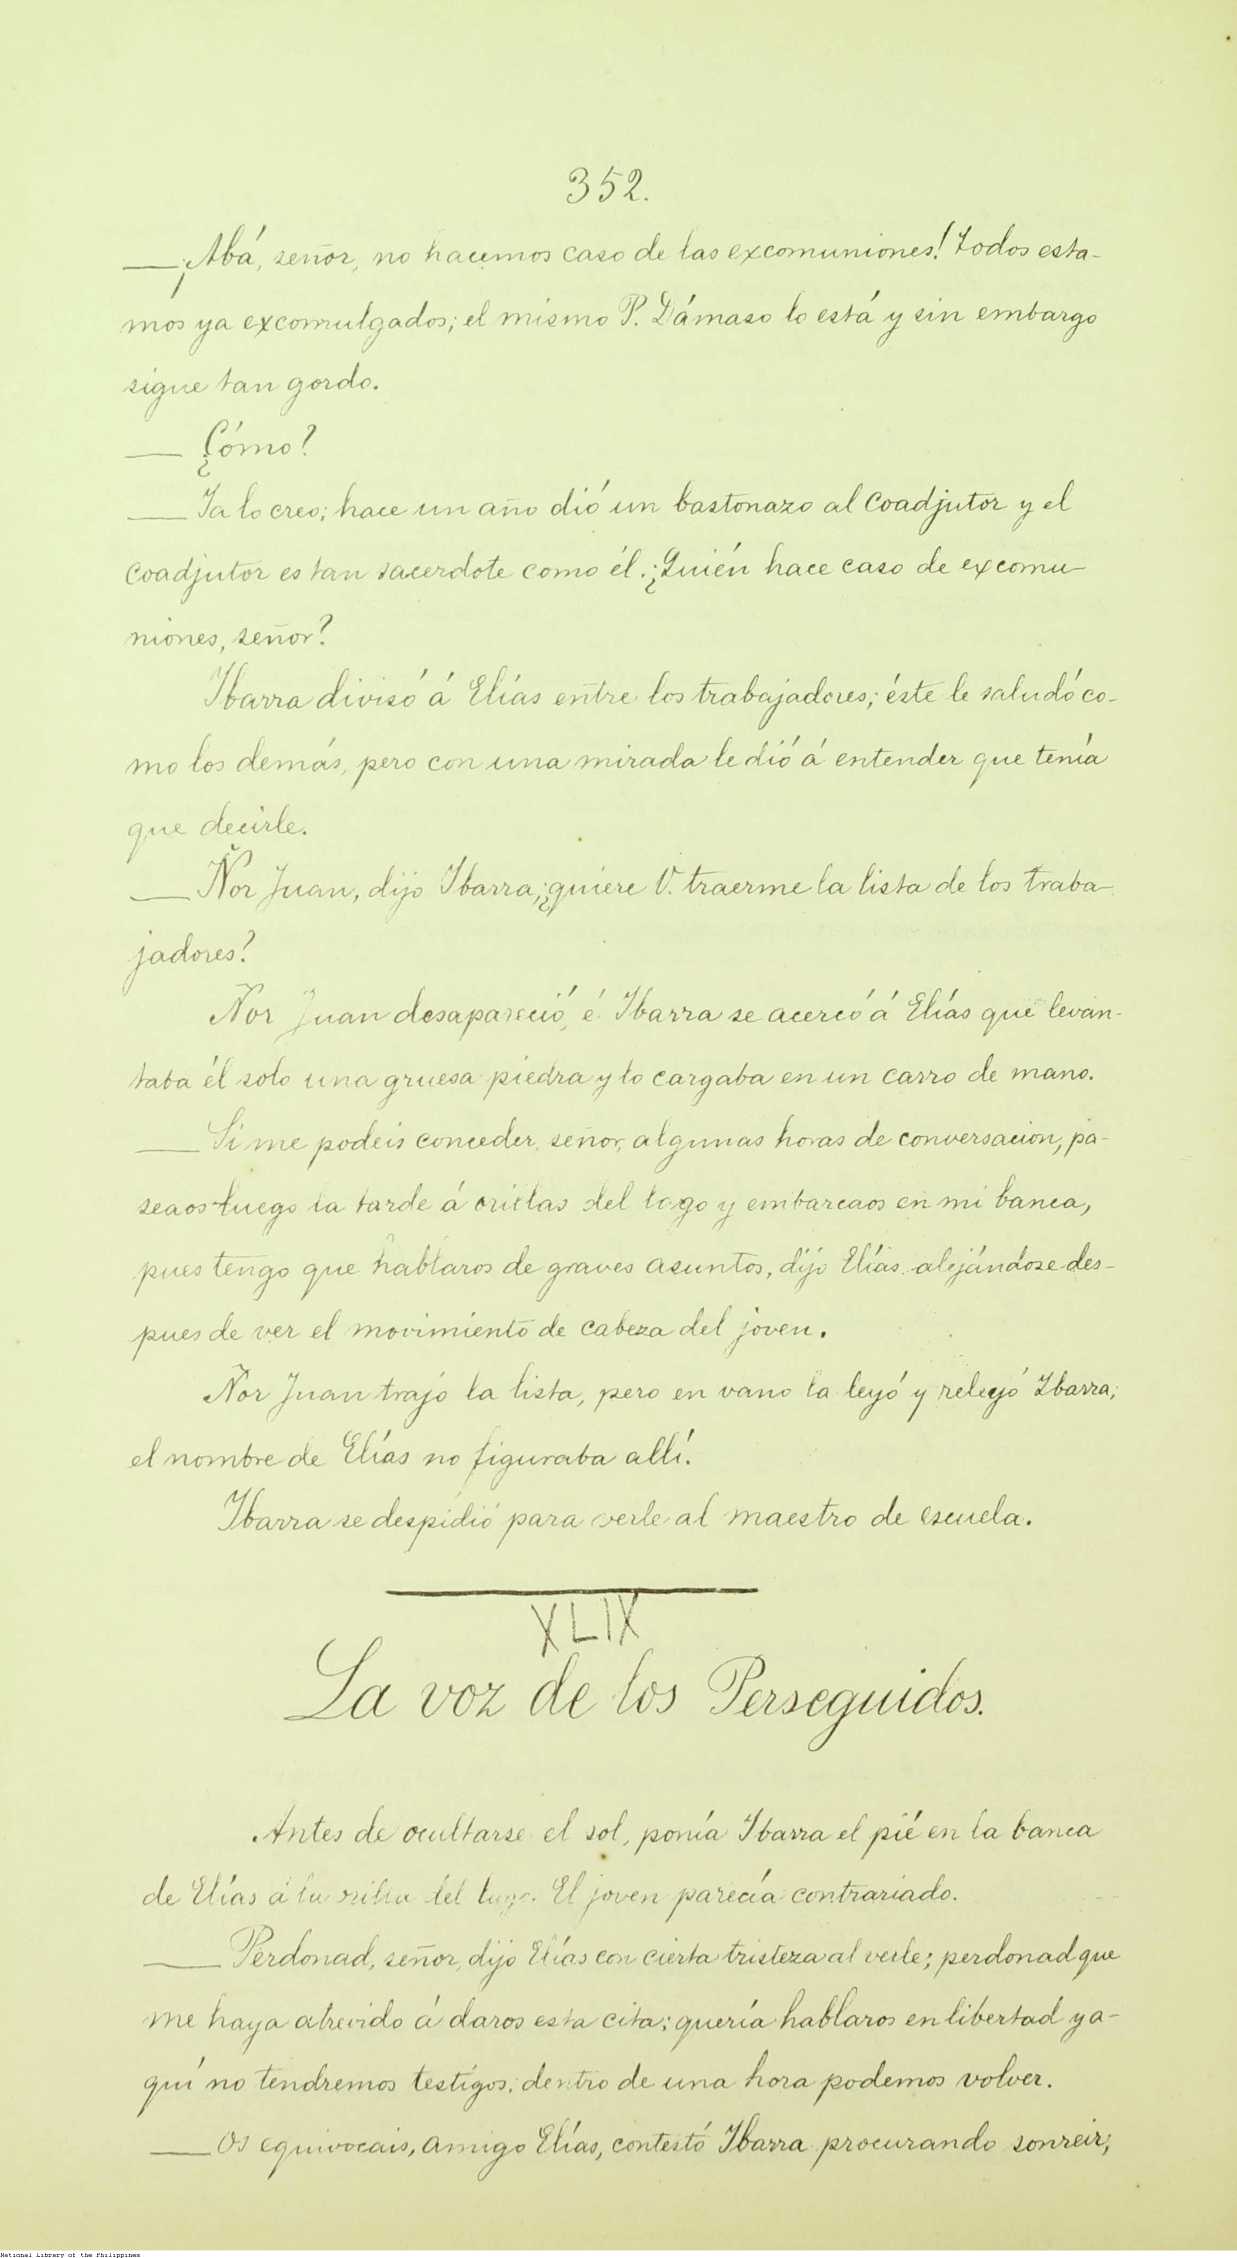 352.
— ¡Abá, señor, no hacemos caso de las excomuniones! Todos esta-
mos ya excomulgados; el mismo P. Dámaso lo está y sin embargo
sigue tan gordo.
— ¿Cómo?
— Ya lo creo; hace un año dió un bastonazo al coadjutor y el
coadjutor es tan sacerdote como él. ¿Quién hace caso de excomu-
niones, señor?
Ibarra divisó á Elías entre los trabajadores; éste le saludó co-
mo los demás, pero con una mirada le dió á entender que tenía
que decirle.
— Ñor Juan, dijo Ibarra; ¿quiere V. traerme la lista de los traba-
jadores?
Ñor Juan desapareció, é Ibarra se acercó á Elías que levan-
taba él solo una gruesa piedra y lo cargaba en un carro de mano.
— Si me podeis conceder, señor, algunas horas de conversacion, pa-
seaos luego la tarde á orillas del lago y embarcaos en mi banca,
pues tengo que hablaros de graves asuntos, dijo Elías alejándose des-
pues de ver el movimiento de cabeza del joven.
Ñor Juan trajo la lista, pero en vano la leyó y releyó Ibarra;
el nombre de Elías no figuraba allí.
Ibarra se despidió para verle al maestro de escuela.
XLIX
La voz de los Perseguidos.
Antes de ocultarse el sol, ponía Ibarra el pié en la banca
de Elías á la orilla del lago. El joven parecía contrariado.
— Perdonad, señor, dijo Elías con cierta tristeza al verle; perdonad que
me haya atrevido á daros esta cita; quería hablaros en libertad y a-
quí no tendremos testigos: dentro de una hora podemos volver.
— Os equivocais, amigo Elías, contestó Ibarra procurando sonreir;
National Library of the Philippines